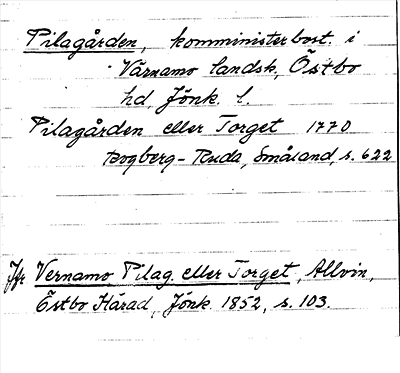 Pilagården, komministerbost. i
Värnamo landsk., Östbo
hd, Jönk. l.
Pilagården eller Torget 1770
Rogberg-Ruda, Småland, s. 622
Jfr Vernamo Pilag. eller Torget, Allvin,
Östbo Härad, Jönk. 1852, s. 103.